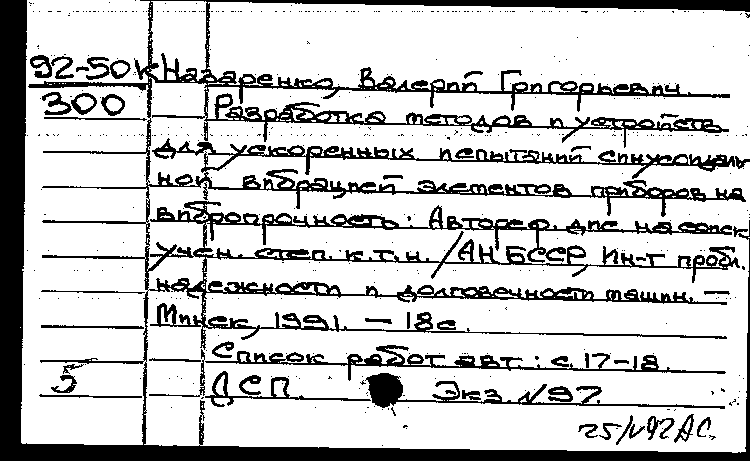 92-50К Назаренко, Валерий Григорьевич.
300 Разработка методов и устройств
для ускоренных испытаний синусоидаль
ной вибрацией элементов приборов на
вибропрочность: Автореф. дис. на соиск
учен. степ. к.т.н. /АН БССР, Ин-т пробл.
надежности и долговечности машин. —
Минск, 1991. — 18с.
Список работ авт.: с. 17-18.
5 ДСП. Экз. №97.
25/V92 АС.